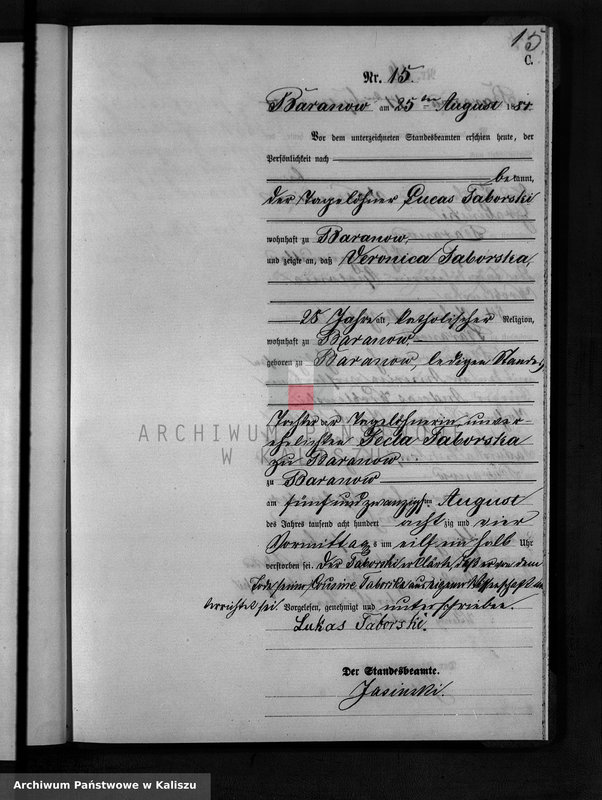 15.
C.
Nr. 15.
Baranow am 25ten August 1884.
Vor dem unterzeichneten Standesbeamten erschien heute, der
Persönlichkeit nach
bekannt,
der Tagelöhner Lucas Taborski
wohnhaft zu Baranow,
und zeigte an, daß Veronica Taborska
25 Jahre alt, katholischer Religion,
wohnhaft zu Baranow,
geboren zu Baranow, ledigen Standes,
Tochter der Tagelöhnerin, unver-
ehelichten Tecla Taborska
zu Baranow
zu Baranow
am fünfundzwanzigsten August
des Jahres tausend acht hundert achtzig und vier
Vormittags um eilf ein halb Uhr
verstorben sei. Der Taborski erklärte, daß er von dem
Tode seiner Cousine Taborska aus eigener Wissenschaft
unterrichtet sei. Vorgelesen, genehmigt und unterschrieben.
Lukas Taborski.
Der Standesbeamte.
Jasinski.
ARCHIWUM PAŃSTWOWE
W KALISZU
Archiwum Państwowe w Kaliszu